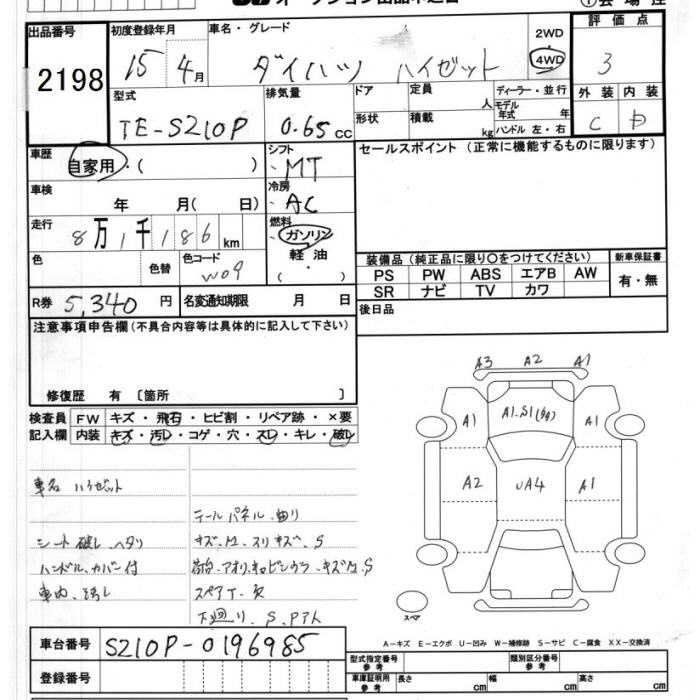 出品番号 初度登録年月 車名・グレード 2WD 評価点
2198 15 4月 ダイハツ ハイゼット 4WD 3
型式 排気量 ドア 定員 人 ディーラー・並行 外装 内装
TE-S210P 0.65cc 形状 積載 kg モデル年式 年 C
ハンドル 左・右
車歴 シフト セールスポイント (正常に機能するものに限ります)
自家用・( ) MT
車検 冷房
年 月( 日) AC
走行 燃料
8万1千186km ガソリン
軽油
色 色替 色コード ( ・ )
W09
装備品 (純正品に限り〇をつけてください) 新車保証書
PS PW ABS エアB AW 有・無
SR ナビ TV カワ
R券 5,340円 名変通知期限 月 日 後日品
注意事項申告欄 (不具合内容等は具体的に記入して下さい)
修復歴 有 〔箇所 〕
検査員 FW キズ・飛石・ヒビ割・リペア跡・×要
記入欄 内装 キズ・汚レ・コゲ・穴・スレ・キレ・破レ
A3 A2 A1
A1 A1.S1 A1
A2 UA4 A1
車名 ハイゼット
テールパネル、曲り
シート破レ、ヘタリ キズ、A2、スリキズ、S
ハンドル、カバー付 荷台、アオリ、キズ、S
車内、ヨゴレ スペアT、
下廻り、S、Pアト
スペア
A-キズ E-エクボ U-凹み W-補修跡 S-サビ C-腐食 XX-交換済
車台番号 S210P-0196985
型式指定番号 参考 類別区分番号 参考
登録番号 車庫証明用 参考 長さ cm 幅 cm 高さ cm